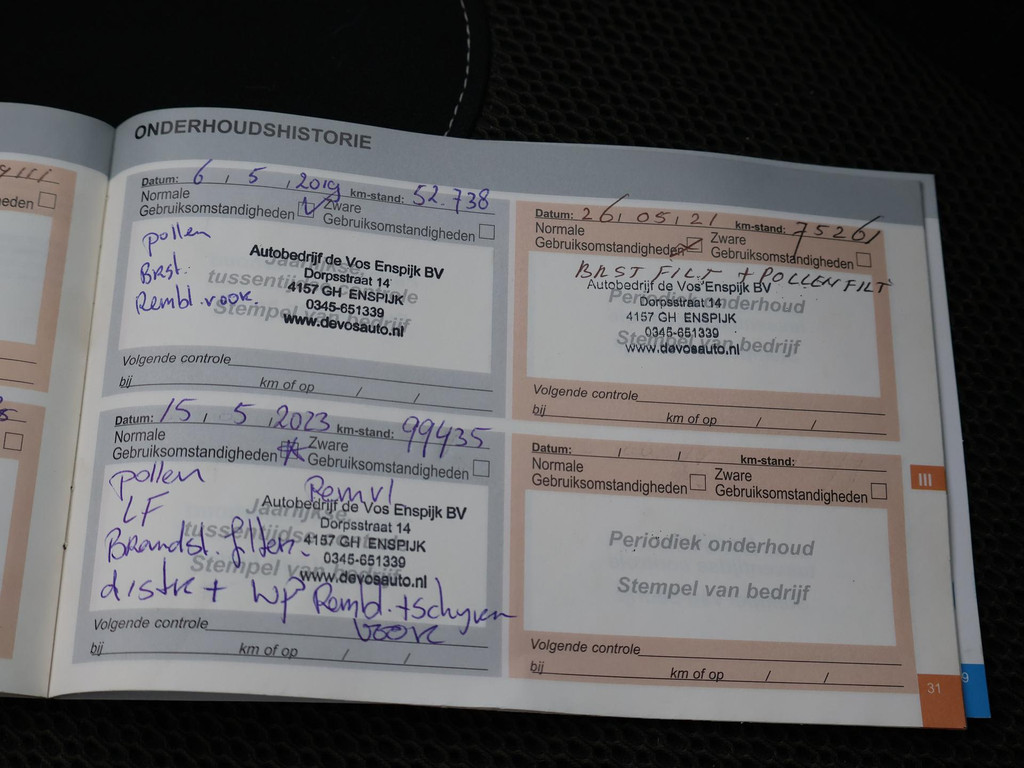 ONDERHOUDSHISTORIE
Datum: 6 / 5 / 2019 km-stand: 52.738
Normale Gebruiksomstandigheden
Zware Gebruiksomstandigheden
pollen
Brst.
Rembl. voor.
Jaarlijkse
tussentijdse controle
Stempel van bedrijf
Autobedrijf de Vos Enspijk BV
Dorpsstraat 14
4157 GH ENSPIJK
0345-651339
www.devosauto.nl
Volgende controle
bij km of op / /
Datum: 26 / 05 / 21 km-stand: 75261
Normale Gebruiksomstandigheden
Zware Gebruiksomstandigheden
BRST FILT + POLLENFILT
Autobedrijf de Vos Enspijk BV
Periodiek onderhoud
Dorpsstraat 14
4157 GH ENSPIJK
0345-651339
Stempel van bedrijf
www.devosauto.nl
Volgende controle
bij km of op / /
Datum: 15 / 5 / 2023 km-stand: 99435
Normale Gebruiksomstandigheden
Zware Gebruiksomstandigheden
pollen
LF
Brandst. filter.
distr + WP Rembl. + schijven
voor
Remvl
Jaarlijkse
Stempel van bedrijf
Autobedrijf de Vos Enspijk BV
Dorpsstraat 14
4157 GH ENSPIJK
0345-651339
www.devosauto.nl
Volgende controle
bij km of op / /
Datum: / / km-stand:
Normale Gebruiksomstandigheden
Zware Gebruiksomstandigheden
Periodiek onderhoud
Stempel van bedrijf
Volgende controle
bij km of op / /
III
31
9